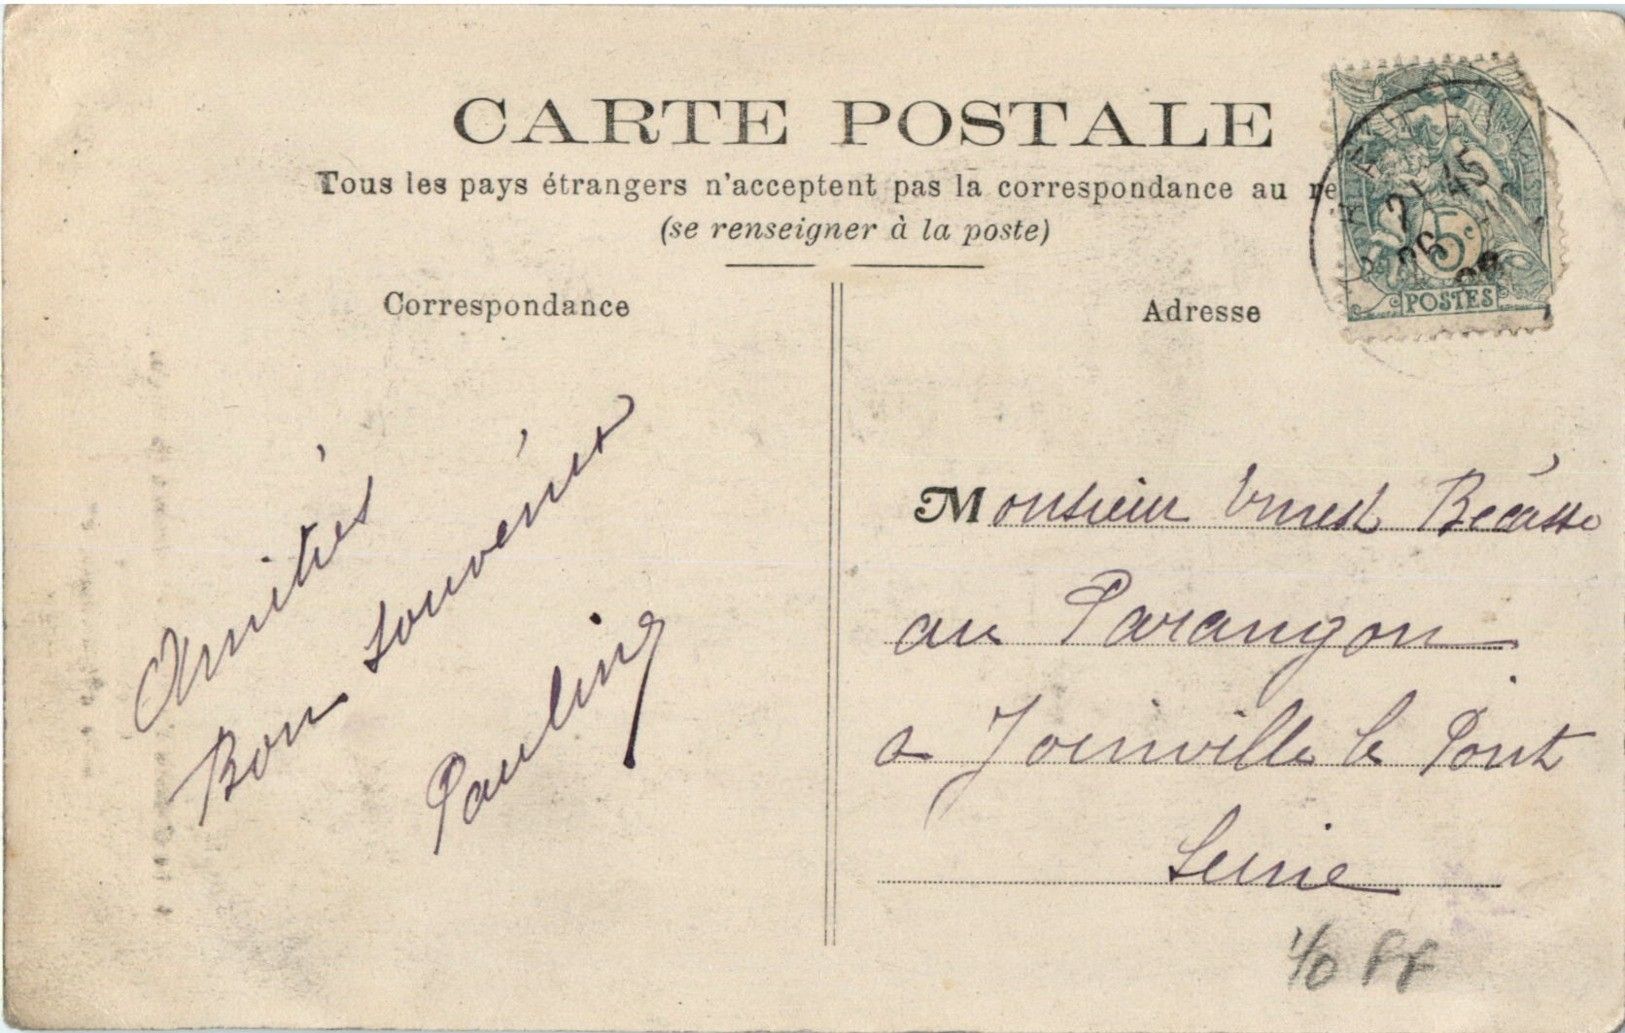 CARTE POSTALE
Tous les pays étrangers n'acceptent pas la correspondance au
(se renseigner à la poste)
Correspondance
Adresse
21 45
5c
POSTES
Amitiés
Bon souvenir
Pauline
Monsieur Ernest Bécasse
au Parangon
a Joinville le Pont
Seine